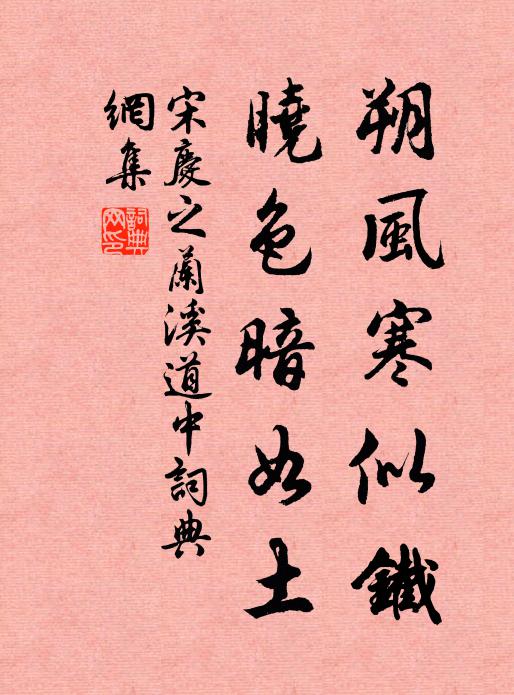 朔風寒似鐵
曉色暗如土
宋慶之蘭溪道中詞典
網集
詞典網印